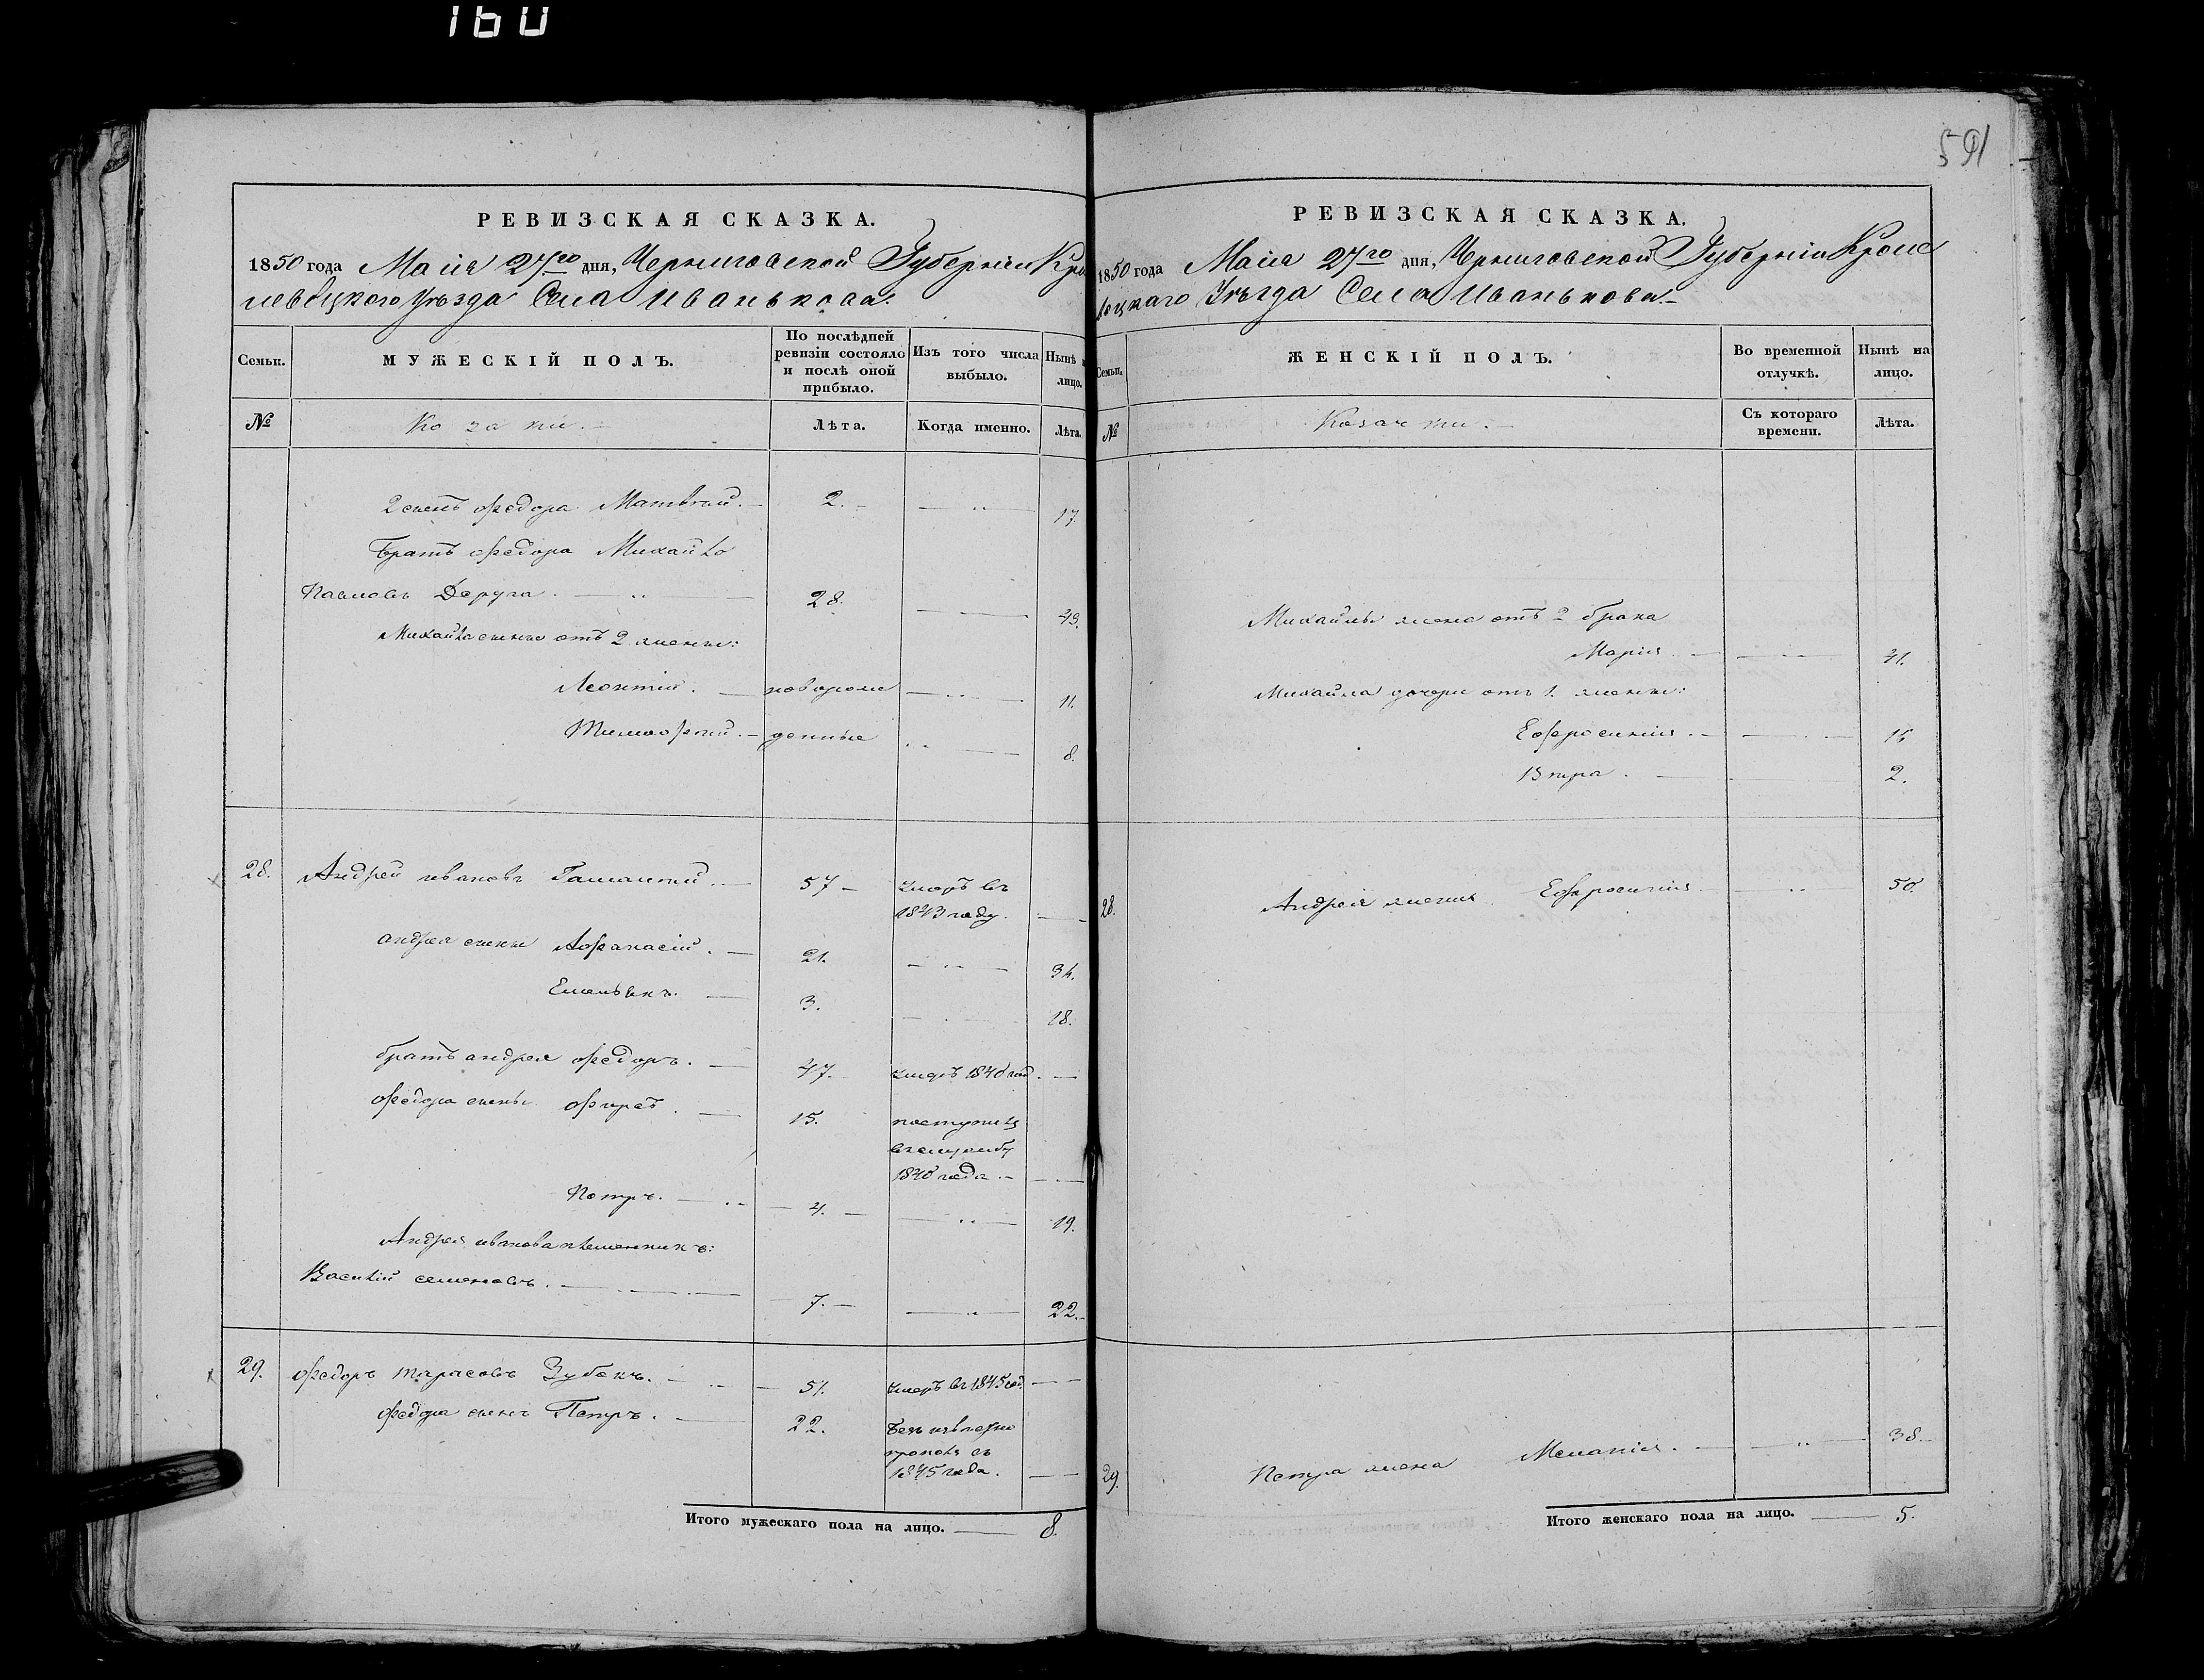 160
591
РЕВИЗСКАЯ СКАЗКА.
1850 года Маія 27го дня, Черниговской Губерніи Кро
левецкого Уезда Села Иванькова.
Семьи. МУЖЕСКІЙ ПОЛЪ. По послѣдней ревизіи состояло и послѣ оной прибыло. Изъ того числа выбыло. Нынѣ лицо.
№ Козаки. Лѣта. Когда именно. Лѣта.
2 сынъ Федора Матвей. 2. 17.
Братъ Федора Михайло
Павловъ 28. 43.
Михайла сыны от 2 жены:
Леонтий. новорож 11.
Тимофей. денные 8.
28. Андрей Ивановъ 57 умеръ въ
1843 году.
Андрея сыны Афанасій. 21. 34.
Емельянъ. 3. 18.
братъ Андрея Федоръ. 47. умеръ 1840 год
Федора сыны Фирсъ. 15. поступил
в службу
1840 года.
Петръ. 4. 19.
Андрея Иванова племянникъ:
Василий Семеновъ. 7. 22.
29. Федоръ Тарасовъ Зубокъ. 51. умеръ въ 1845 год
Федора сынъ Петръ. 22. Безъ известно
пропал съ
1845 года.
Итого мужескаго пола на лицо. 8.
РЕВИЗСКАЯ СКАЗКА.
1850 года Маія 27го дня, Черниговской Губерніи Кроле
вецкаго Уѣзда Села Иванькова
Семьи. ЖЕНСКІЙ ПОЛЪ. Во временной отлучкѣ. Нынѣ на лицо.
№ Козачки. Съ котораго времени. Лѣта.
Михайлы жена отъ 2 брака
Марія 41.
Михайла дочери отъ 1. жены:
Ефросинія. 16
Вѣра. 2.
28. Андрея жена Ефросинія 50.
29. Петра жена Меланія. 38.
Итого женскаго пола на лицо. 5.